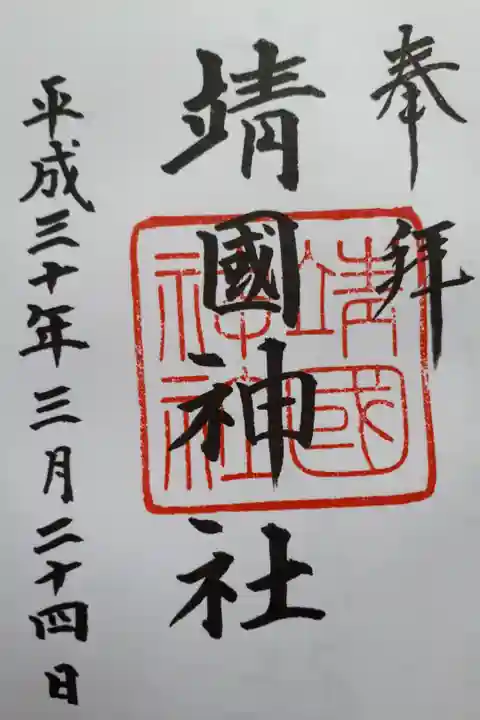 奉拜
靖國神社
靖國神社
平成三十年三月二十四日